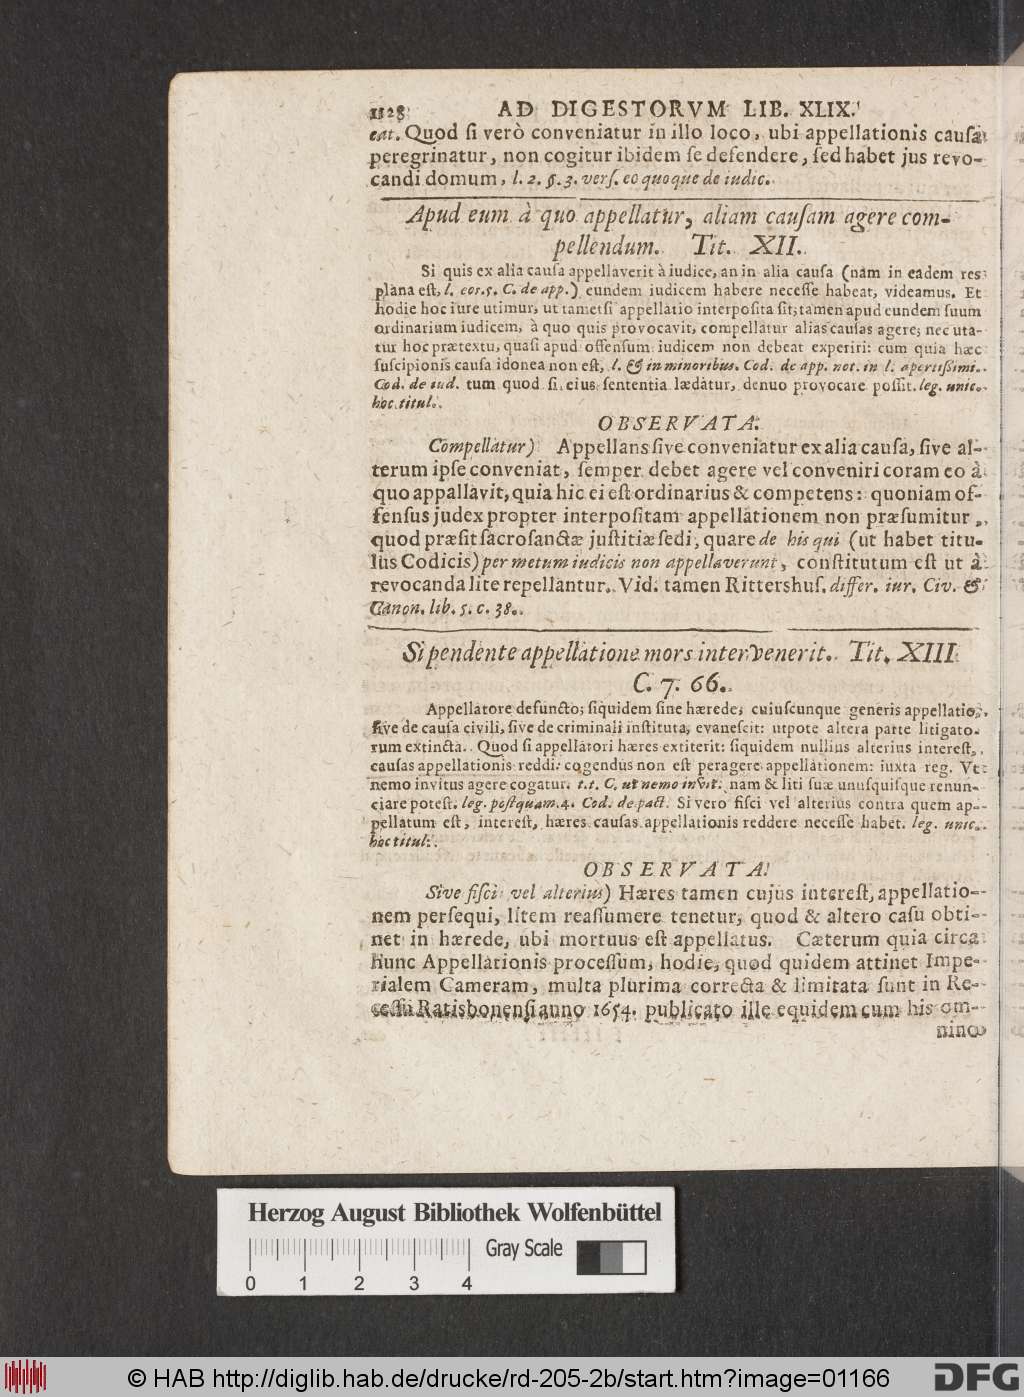 1128 AD DIGESTORVM LIB. XLIX.
eat. Quod ſi verò conveniatur in illo loco, ubi appellationis cauſa
peregrinatur, non cogitur ibidem ſe defendere, ſed habet jus revo-
candi domum, l. 2. §. 3. verſ. eo quoque de iudic.
Apud eum à quo appellatur, aliam cauſam agere com-
pellendum. Tit. XII.
Si quis ex alia cauſa appellaverit à iudice, an in alia cauſa (nam in eadem res
plana eſt, l. eos. §. C. de app.) eundem iudicem habere neceſſe habeat, videamus. Et
hodie hoc iure utimur, ut tametſi appellatio interpoſita ſit, tamen apud eundem ſuum
ordinarium iudicem, à quo quis provocavit, compellatur alias cauſas agere; nec uta-
tur hoc prætextu, quaſi apud offenſum iudicem non debeat experiri: cum quia hæc
ſuſcipionis cauſa idonea non eſt, l. & in minoribus. Cod. de app. not. in l. apertißimi.
Cod. de iud. tum quod ſi eius ſententia lædatur, denuo provocare poſſit. leg. unic.
hoc titul.
OBSERVATA.
Compellatur) Appellans ſive conveniatur ex alia cauſa, ſive al-
terum ipſe conveniat, ſemper debet agere vel conveniri coram eo à
quo appallavit, quia hic ei eſt ordinarius & competens: quoniam of-
fenſus judex propter interpoſitam appellationem non præſumitur,
quod præſit ſacroſanctæ juſtitiæ ſedi, quare de his qui (ut habet titu-
lus Codicis) per metum iudicis non appellaverunt, conſtitutum eſt ut à
revocanda lite repellantur. Vid. tamen Rittershuſ. differ. iur. Civ. &
Canon. lib. 5. c. 38.
Si pendente appellatione mors intervenerit. Tit. XIII
C. 7. 66.
Appellatore defuncto; ſiquidem ſine hærede, cuiuſcunque generis appellatio,
ſive de cauſa civili, ſive de criminali inſtituta, evaneſcit: utpote altera parte litigato-
rum extincta. Quod ſi appellatori hæres extiterit: ſiquidem nullius alterius intereſt,
cauſas appellationis reddi: cogendus non eſt peragere appellationem: iuxta reg. Vt
nemo invitus agere cogatur. t.t. C. ut nemo invit. nam & liti ſuæ unuſquiſque renun-
ciare poteſt. leg. poſtquam. 4. Cod. de pact. Si vero fiſci vel alterius contra quem ap-
pellatum eſt, intereſt, hæres cauſas appellationis reddere neceſſe habet. leg. unic.
hoc titul.
OBSERVATA.
Sive fiſci vel alterius) Hæres tamen cujus intereſt, appellatio-
nem perſequi, litem reaſſumere tenetur, quod & altero caſu obti-
net in hærede, ubi mortuus eſt appellatus. Cæterum quia circa
hunc Appellationis proceſſum, hodie, quod quidem attinet Impe-
rialem Cameram, multa plurima correcta & limitata ſunt in Re-
ceſſu Ratisbonenſi anno 1654. publicato ille equidem cum his om-
nino
Herzog August Bibliothek Wolfenbüttel
Gray Scale
0 1 2 3 4
© HAB http://diglib.hab.de/drucke/rd-205-2b/start.htm?image=01166
DFG